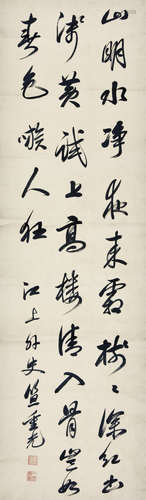 山明水淨夜來霜樹〻深紅出
淺黃試上高樓清入骨豈如
春色嗾人狂 江上外史笪重光